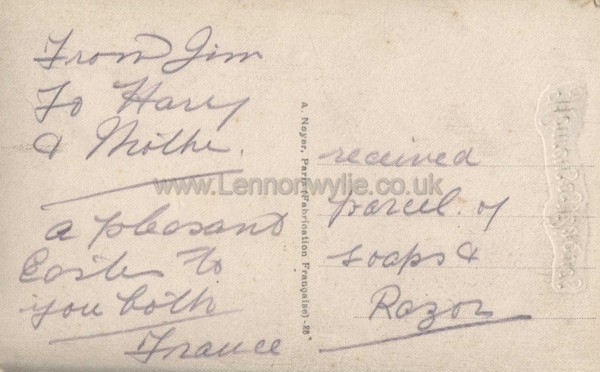 From Jim
To Harry
& Mother
a pleasant
Easter to
you both
France
A. Noyer, Paris (Fabrication Française)-28
received
parcel of
soaps &
Razor
www.Lennonwylie.co.uk